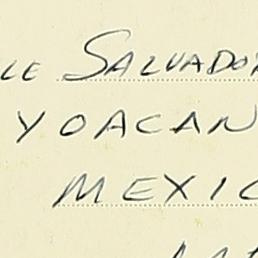 LE SALVADOR
YOACAN
MEXIC